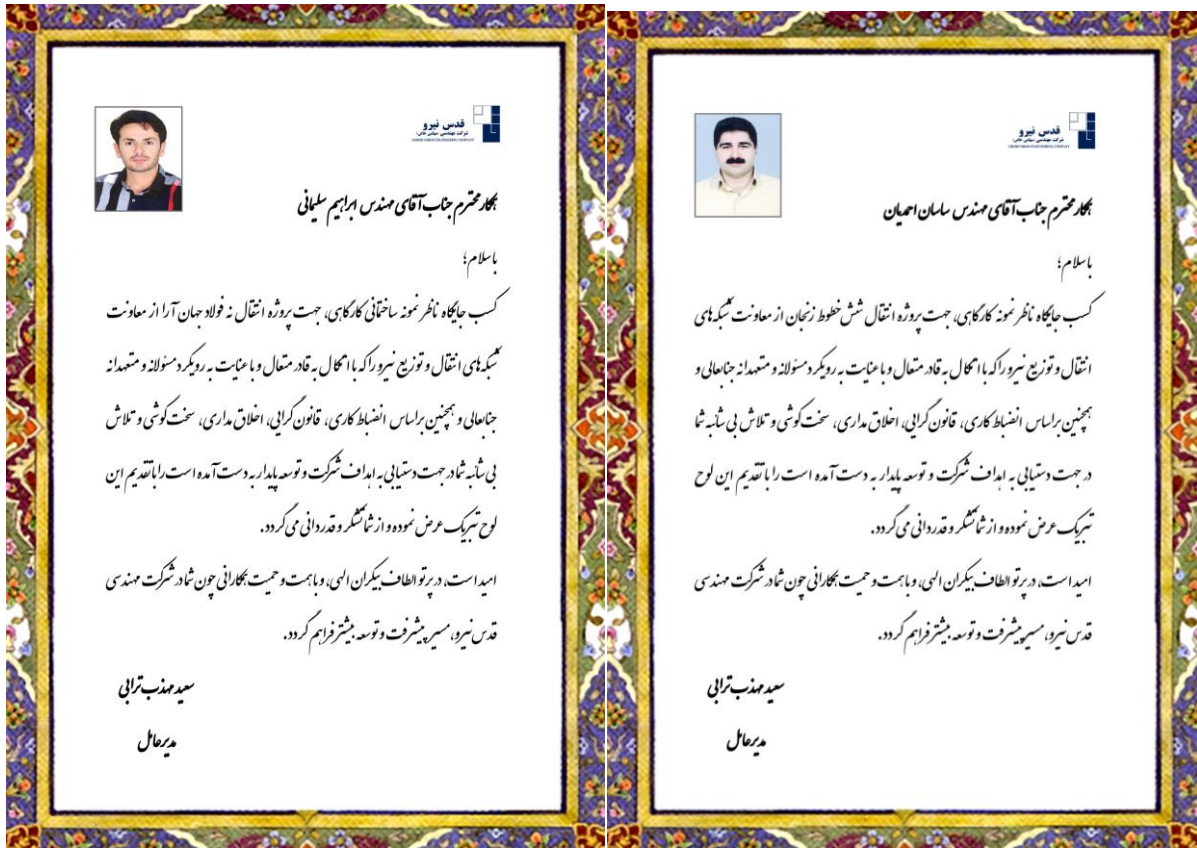 قدس نیرو
شرکت مهندسی (سهامی خاص)
GHODS NIROO ENGINEERING COMPANY
همکار محترم جناب آقای مهندس ابراهیم سلیمانی
باسلام؛
کسب جایگاه ناظر نمونه ساختمانی کارگاهی، جهت پروژه انتقال نه فولاد جهان آرا از معاونت
شبکه های انتقال و توزیع نیرو را که با اتکال به قادر متعال و با عنایت به رویکرد مسئولانه و متعهدانه
جنابعالی و همچنین براساس انضباط کاری، قانون گرایی، اخلاق مداری، سخت کوشی و تلاش
بی شائبه شما در جهت دستیابی به اهداف شرکت و توسعه پایدار به دست آمده است را با تقدیم این
لوح تبریک عرض نموده و از شما تشکر و قدردانی می گردد.
امید است، در پرتو الطاف بیکران الهی، و با همت و حمیت همکارانی چون شما در شرکت مهندسی
قدس نیرو، مسیر پیشرفت و توسعه بیشتر فراهم گردد.
سعید مهذب ترابی
مدیرعامل
قدس نیرو
شرکت مهندسی (سهامی خاص)
GHODS NIROO ENGINEERING COMPANY
همکار محترم جناب آقای مهندس ساسان احمدیان
باسلام؛
کسب جایگاه ناظر نمونه کارگاهی، جهت پروژه انتقال شش خطوط زنجان از معاونت شبکه های
انتقال و توزیع نیرو را که با اتکال به قادر متعال و با عنایت به رویکرد مسئولانه و متعهدانه جنابعالی و
همچنین براساس انضباط کاری، قانون گرایی، اخلاق مداری، سخت کوشی و تلاش بی شائبه شما
در جهت دستیابی به اهداف شرکت و توسعه پایدار به دست آمده است را با تقدیم این لوح
تبریک عرض نموده و از شما تشکر و قدردانی می گردد.
امید است، در پرتو الطاف بیکران الهی، و با همت و حمیت همکارانی چون شما در شرکت مهندسی
قدس نیرو، مسیر پیشرفت و توسعه بیشتر فراهم گردد.
سعید مهذب ترابی
مدیرعامل